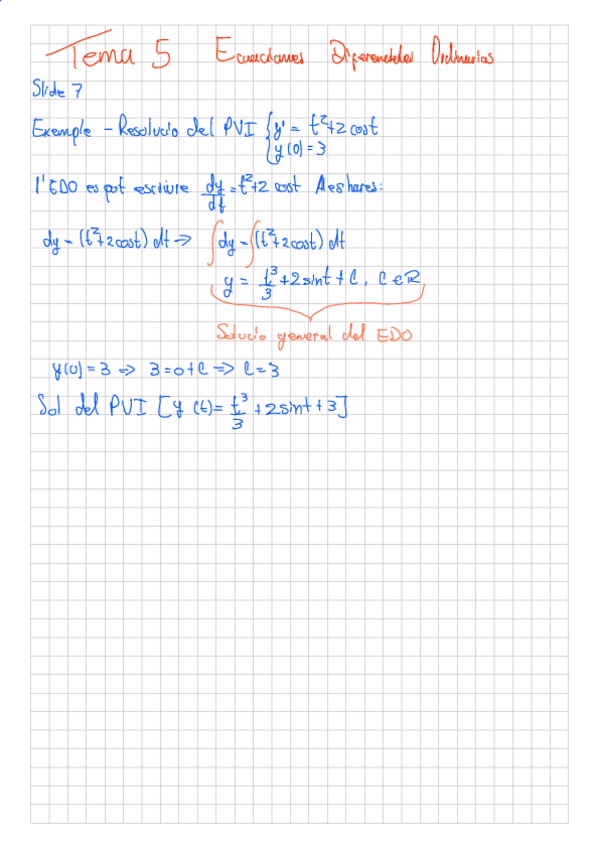 Tema 5 Ecuaciones Diferenciales Ordinarias
Slide 7
Exemple - Resolucio del PVI { y' = t²+2 cost
y(0) = 3
l'EDO es pot escriure dy/dt = t²+2 cost Aleshares:
dy = (t²+2cost) dt => ∫dy = ∫(t²+2cost) dt
y = t³/3 + 2sint + C, C ∈ R
Solucio general del EDO
y(0) = 3 => 3 = 0 + C => C = 3
Sol del PVI [y (t) = t³/3 + 2sint + 3]